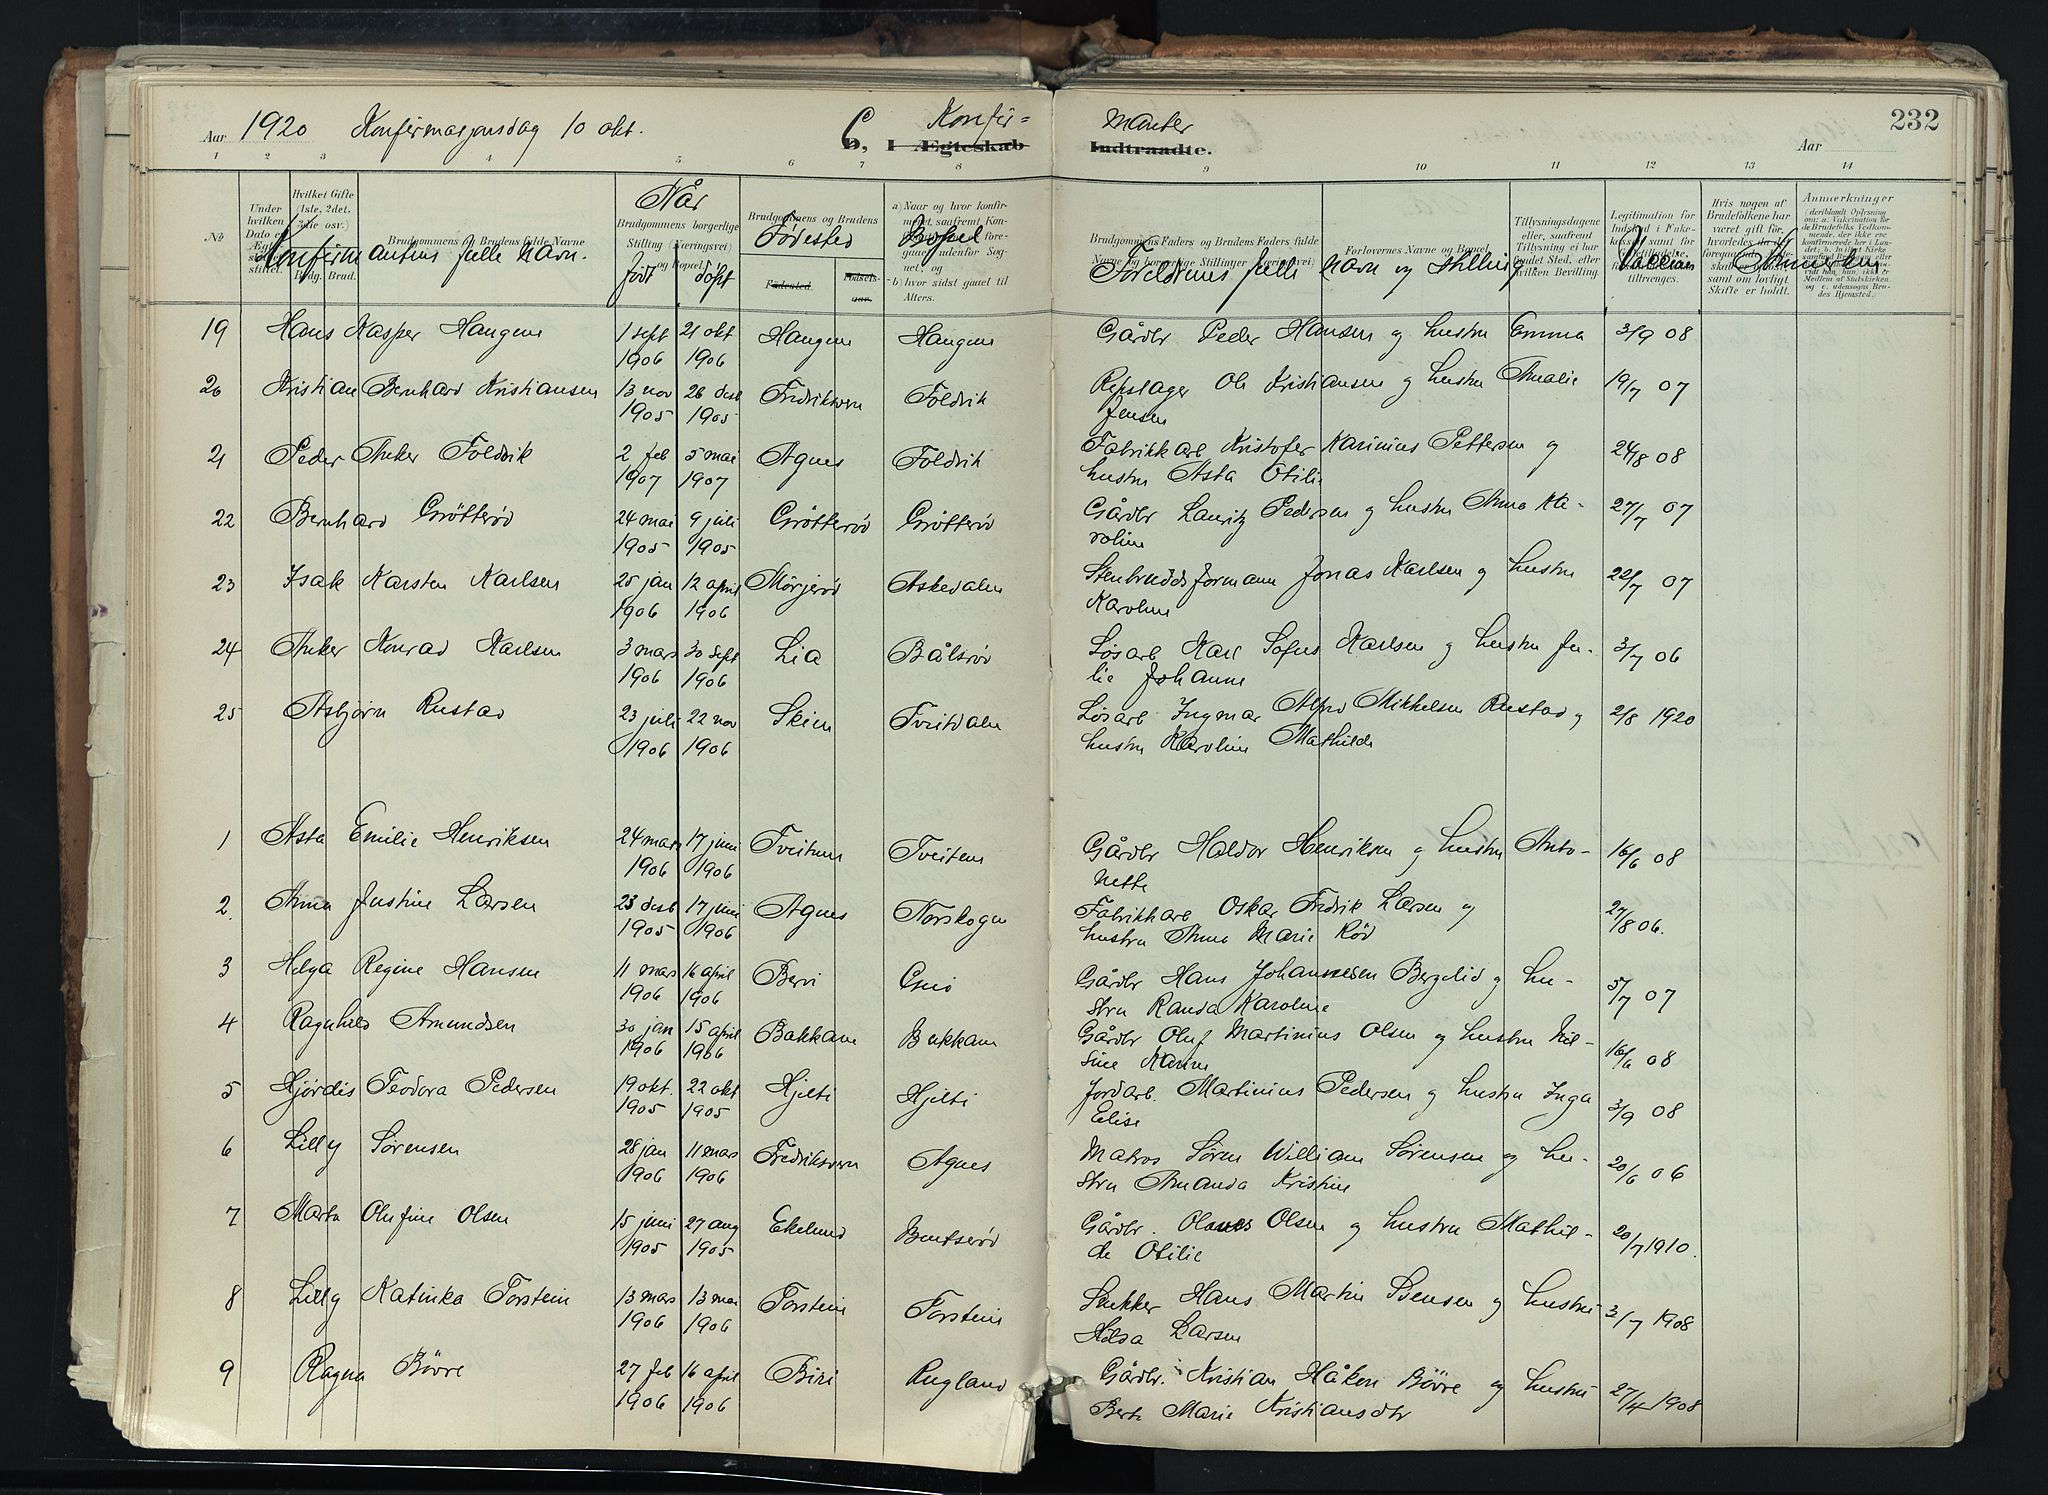 Aar 1920 Konfirmasjonsdag 10 okt. C, Konfir= manter 232
B, I Ægteskab Indtraadte. Aar
1 2 3 4 5 6 7 8 9 10 11 12 13 14
№ Konfirmantens fulle Navn. Når født døpt Fødested Bopel Foreldrenes fulle navn og stilling Vaksin Anmerkn
19 Hans Kasper Haugene 1 sept 1906 21 okt 1906 Haugene Haugene Gårdbr Peder Hansen og hustru Emma 3/9 08
20 Kristian Bernhard Kristiansen 13 nov 1905 26 desb 1905 Fredriksvern Foldvik Repslager Ole Kristiansen og hustru Amalie 19/7 07
Jensen
21 Peder Anker Foldvik 2 feb 1907 5 mai 1907 Agnes Foldvik Fabrikkarb Kristofer Karinius Pettersen og 24/8 08
hustru Asta Otilie
22 Bernhard Grøtterød 24 mai 1905 9 juli 1905 Grøtterød Grøtterød Gårdbr Lauritz Pedersen og hustru Anna Ka-
roline 27/7 07
23 Isak Karsten Karlsen 25 jan 1906 12 april 1906 Mørjerød Askedalen Stenbruddsformann Jonas Karlsen og hustru 22/7 07
Karoline
24 Anker Konrad Karlsen 3 mars 1906 30 sept 1906 Lia Bålsrød Løsarb Karl Sofus Karlsen og hustru Ju-
lie Johanne 3/7 06
25 Asbjørn Rustad 23 juli 1906 22 nov 1906 Skien Tveitdalen Løsarb Ingmar Alfred Mikkelsen Rustad og 2/8 1920
hustru Karoline Mathilde
1 Asta Emilie Henriksen 24 mars 1906 17 juni 1906 Tveitene Tveitene Gårdbr Haldor Henriksen og hustru Anto-
nette 16/6 08
2. Anna Justine Larsen 23 desb 1905 17 juni 1906 Agnes Torskogen Fabrikkarb Oskar Fredrik Larsen og 27/8 06.
hustru Anna Marie Rød
3 Helga Regine Hansen 11 mars 1906 16 april 1906 Berv Gårdbr Hans Johannesen Bergelid og hu-
stru Randa Karoline 5/7 07
4 Ragnhild Amundsen 30 jan 1906 15 april 1906 Bakkane Bakkane Gårdbr Oluf Martinius Olsen og hustru Nil-
sine Hanna 16/6 08
5 Hjørdis Teodora Pedersen 19 okt. 1905 22 okt 1905 Hjelti Hjelti Jordarb. Martinius Pedersen og hustru Inga
Elise 3/9 08
6 Lilly Sørensen 28 jan 1906 11 mars 1906 Fredriksvern Agnes Matros Søren William Sørensen og hu-
stru Amanda Kristine 20/6 06
7 Marta Olufine Olsen 15 juni 1905 27 aug 1905 Ekelund Bentserød Gårdbr. Olaves Olsen og hustru Mathil-
de Otilie 20/7 1910.
8 Lilly Katinka Torstein 13 mars 1906 13 mai 1906 Torstein Torstein Snekker Hans Martin Svensen og hustru 3/7 1908
Hilda Larsen
9 Ragna Bövre 27 feb 1906 16 april 1906 Biri Rugland Gårdbr. Kristian Håken Bövre og hustru 27/4 1908
Berte Marie Kristiansdtr